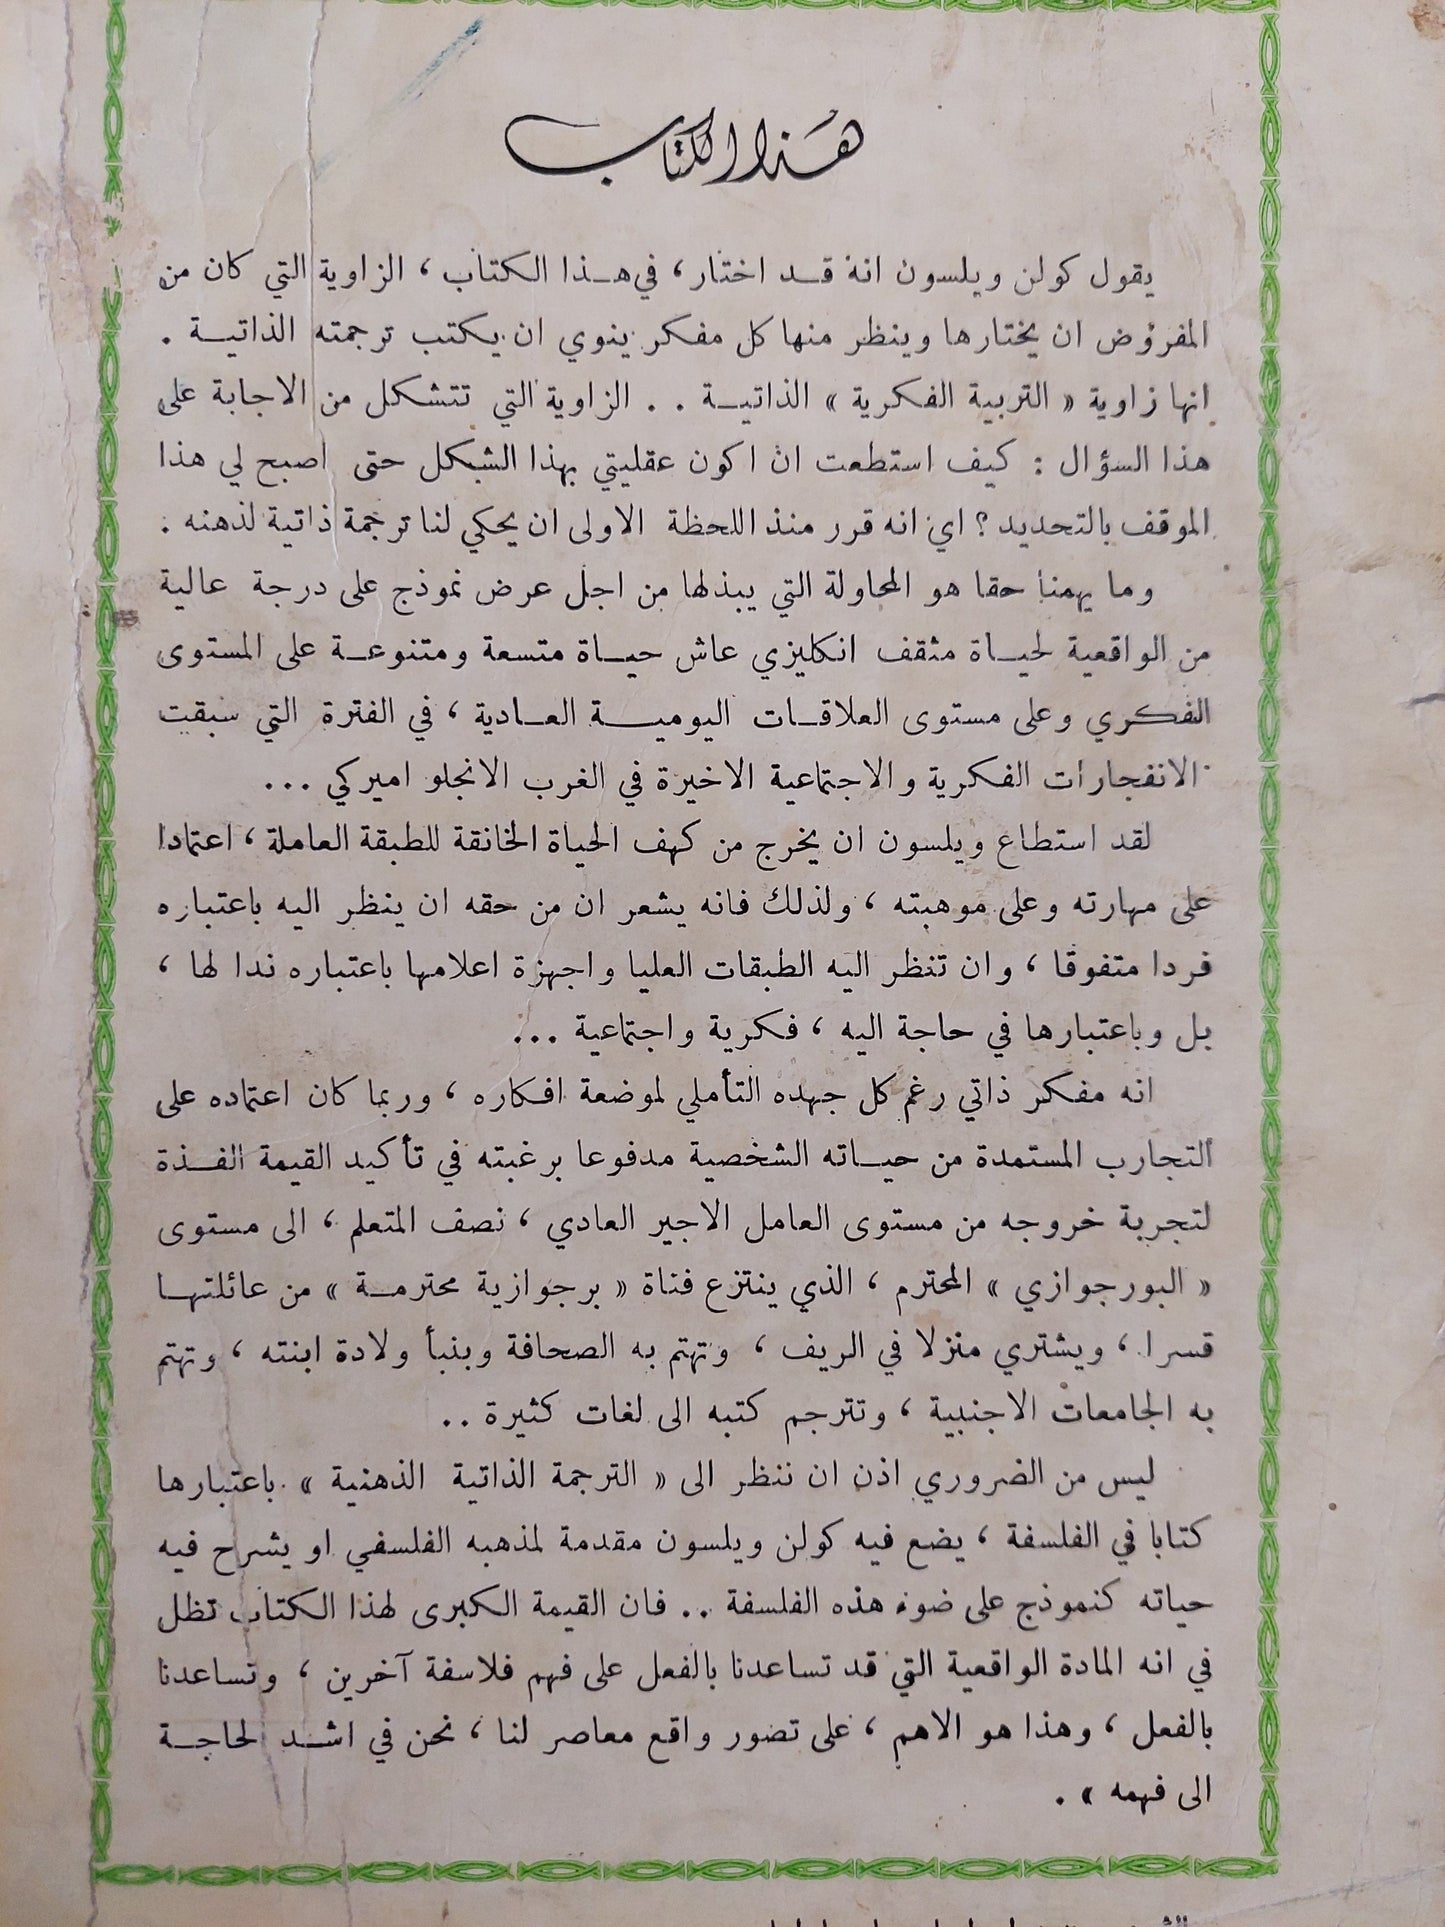 هذا الكتاب
يقول كولن ويلسون انه قد اختار ، في هذا الكتاب ، الزاوية التي كان من
المفروض ان يختارها وينظر منها كل مفكر ينوي ان يكتب ترجمته الذاتية .
انها زاوية « التربية الفكرية » الذاتية . . الزاوية التي تتشكل من الاجابة على
هذا السؤال : كيف استطعت ان اكون عقليتي بهذا الشكل حتى اصبح لي هذا
الموقف بالتحديد ؟ اي انه قرر منذ اللحظة الاولى ان يحكي لنا ترجمة ذاتية لذهنه .
وما يهمنا حقا هو المحاولة التي يبذلها من اجل عرض نموذج على درجة عالية
من الواقعية لحياة مثقف انكليزي عاش حياة متسعة ومتنوعة على المستوى
الفكري وعلى مستوى العلاقات اليومية العادية ، في الفترة التي سبقت
الانفجارات الفكرية والاجتماعية الاخيرة في الغرب الانجلو اميركي ...
لقد استطاع ويلسون ان يخرج من كهف الحياة الخانقة للطبقة العاملة ، اعتمادا
على مهارته وعلى موهبته ، ولذلك فانه يشعر ان من حقه ان ينظر اليه باعتباره
فردا متفوقا ، وان تنظر اليه الطبقات العليا واجهزة اعلامها باعتباره ندا لها ،
بل وباعتبارها في حاجة اليه ، فكرية واجتماعية ...
انه مفكر ذاتي رغم كل جهده التأملي لموضعة افكاره ، وربما كان اعتماده على
التجارب المستمدة من حياته الشخصية مدفوعا برغبته في تأكيد القيمة الفذة
لتجربة خروجه من مستوى العامل الاجير العادي ، نصف المتعلم ، الى مستوى
« البورجوازي » المحترم ، الذي ينتزع فتاة « برجوازية محترمة » من عائلتها
قسرا ، ويشتري منزلا في الريف ، وتهتم به الصحافة وبنبأ ولادة ابنته ، وتهتم
به الجامعات الاجنبية ، وتترجم كتبه الى لغات كثيرة ..
ليس من الضروري اذن ان ننظر الى « الترجمة الذاتية الذهنية » باعتبارها
كتابا في الفلسفة ، يضع فيه كولن ويلسون مقدمة لمذهبه الفلسفي او يشرح فيه
حياته كنموذج على ضوء هذه الفلسفة .. فان القيمة الكبرى لهذا الكتاب تظل
في انه المادة الواقعية التي قد تساعدنا بالفعل على فهم فلاسفة آخرين ، وتساعدنا
بالفعل ، وهذا هو الاهم ، على تصور واقع معاصر لنا ، نحن في اشد الحاجة
الى فهمه » .